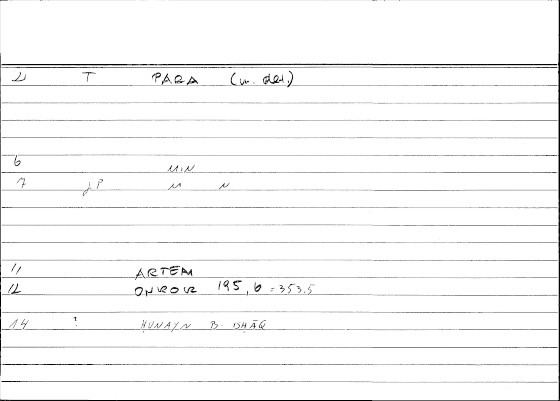 T PARA
6 MIN
7 JP M N
11 ARTEM
12 ONROR 195, 6 = 353.5
14 ? ḤUNAYN B. ISḤĀQ